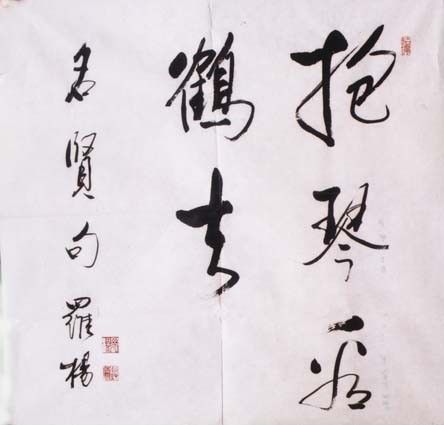 抱琴看
鶴去
名賢句 羅楊